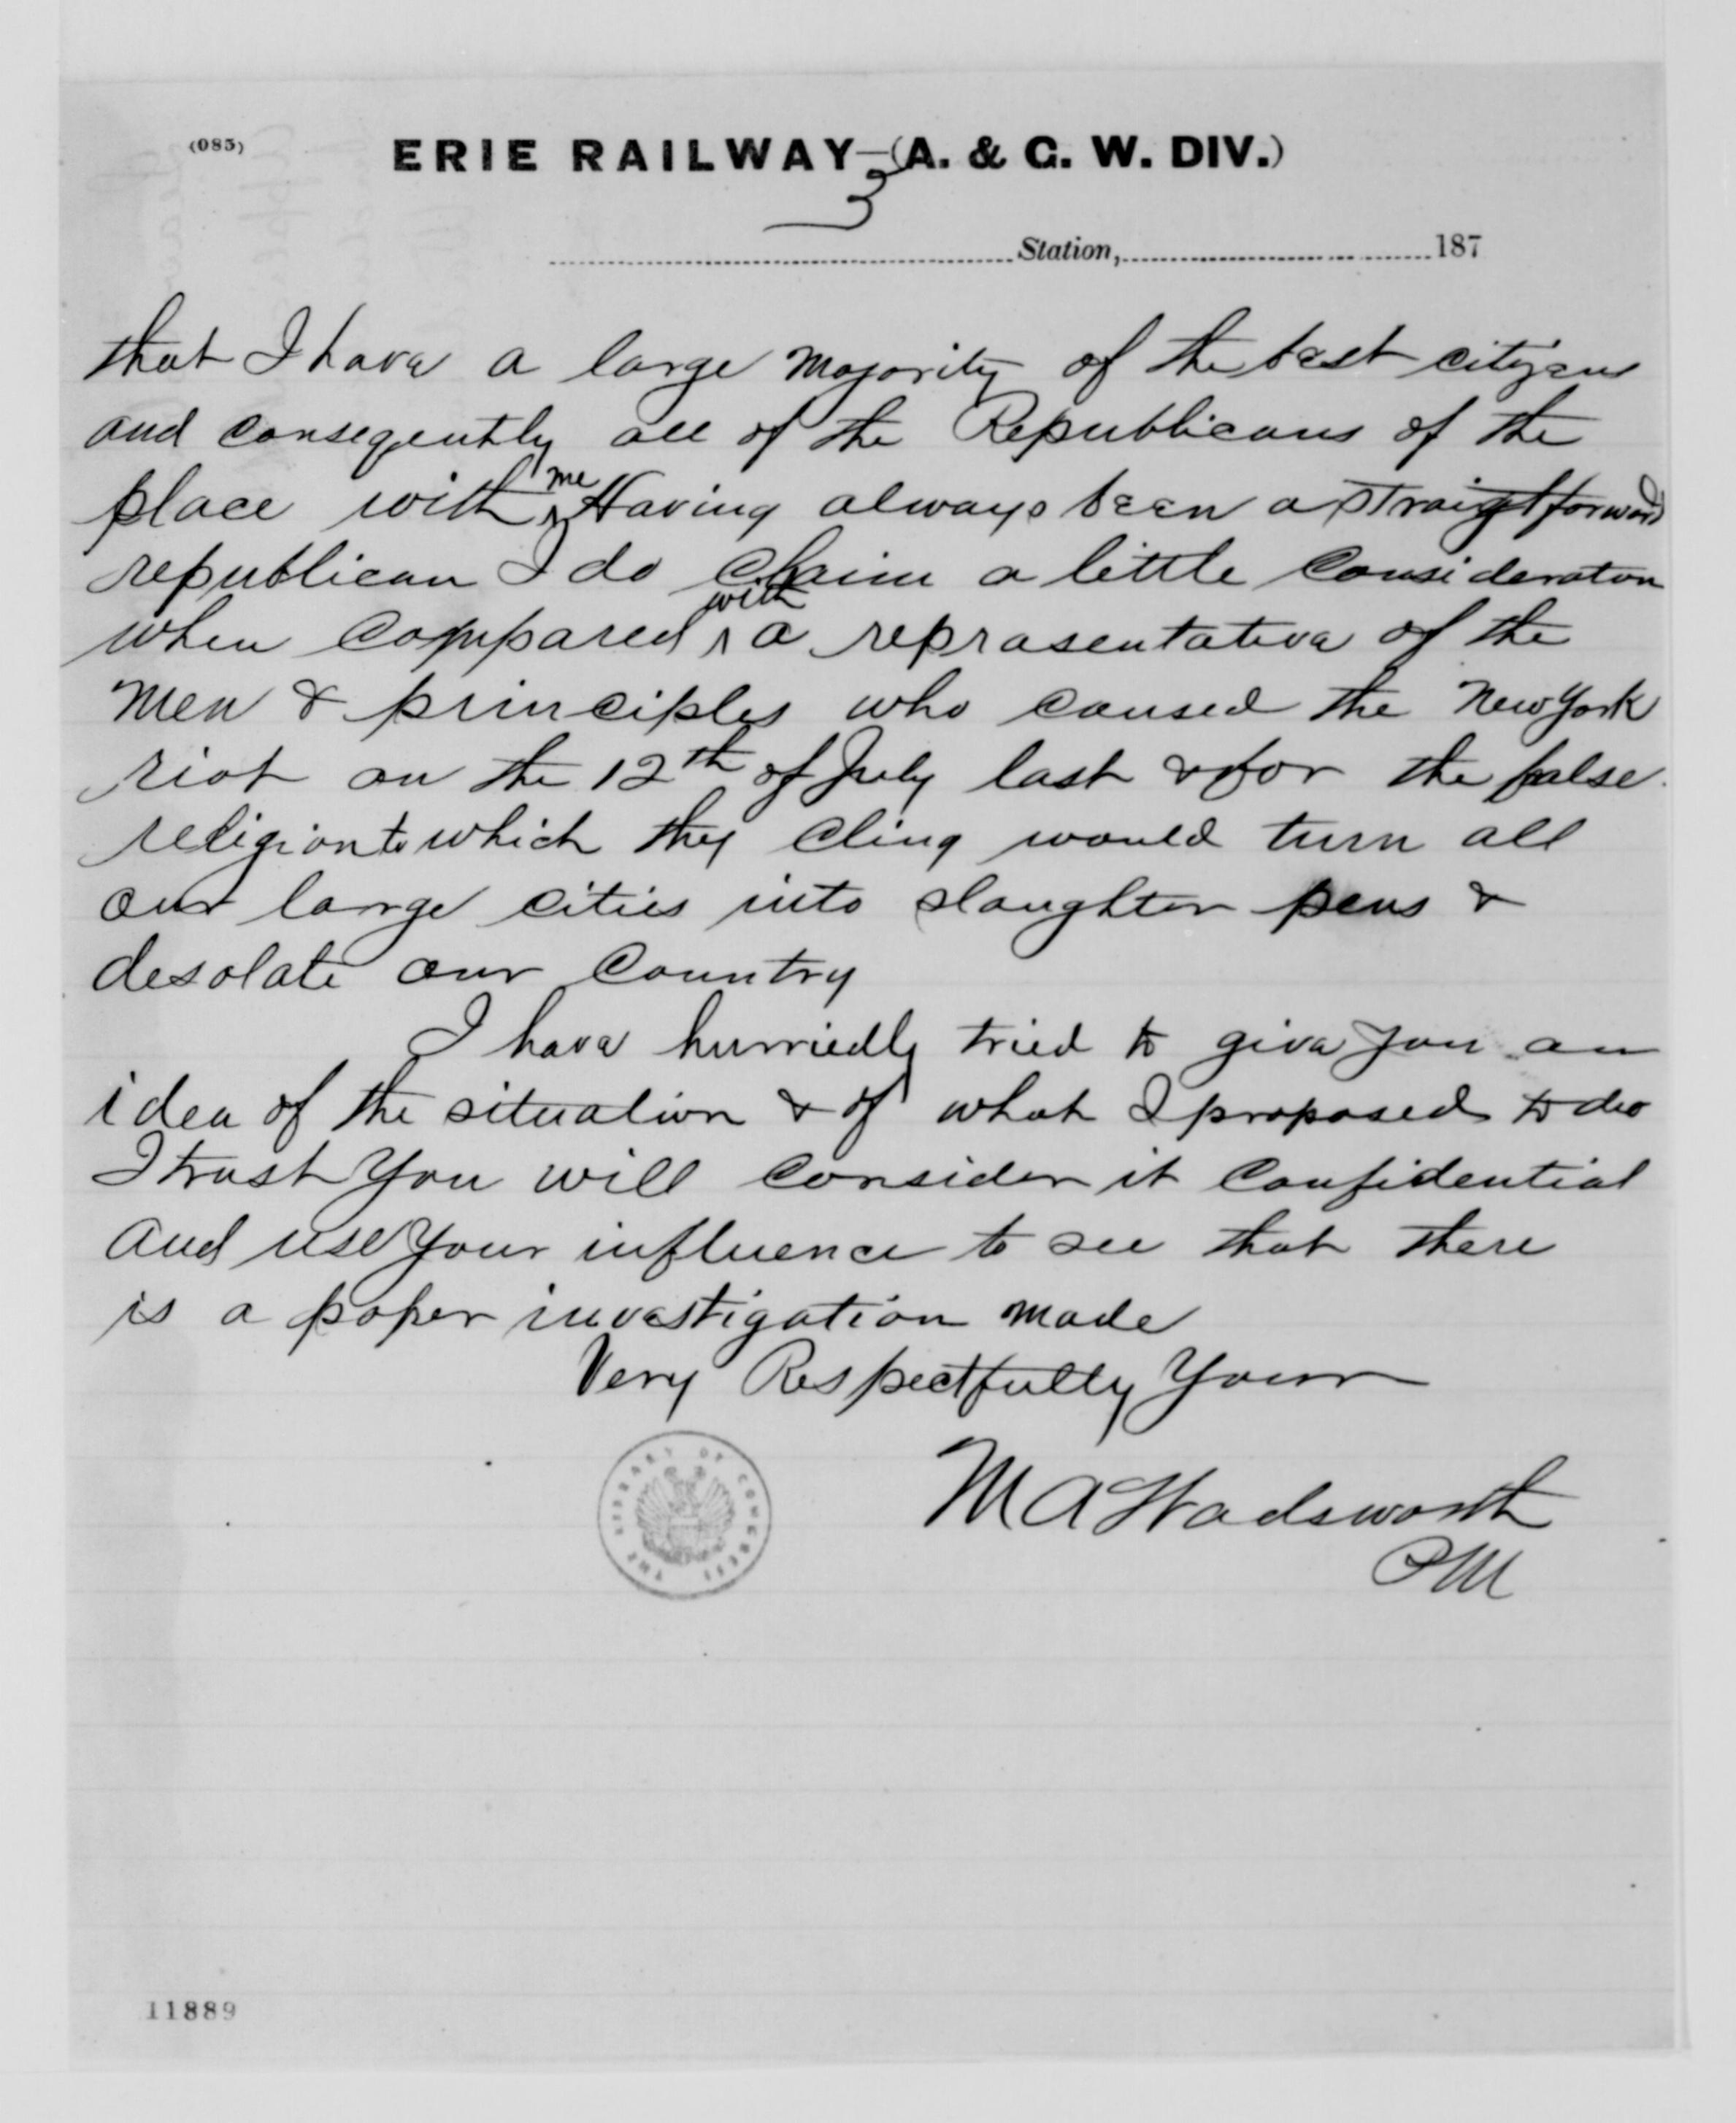 (085)
ERIE RAILWAY—(A. & G. W. DIV.)
3
Station, 187
that I have a large majority of the best citizens
and conseqently all of the Republicans of the
place with me Having always been a straigtforward
republican I do claim a little consideraton
when compared with a representative of the
men & principles who caused the New York
riot on the 12th of July last & for the false
religion to which they cling would turn all
our large cities into slaughter pens &
desolate our Country
I have hurriedly tried to give you an
idea of the situation & of what I proposed to do
I trust you will consider it confidential
and use your influence to see that there
is a poper investigation made
Very Respectfully Your
M A Wadsworth
PM
THE LIBRARY OF CONGRESS
11889